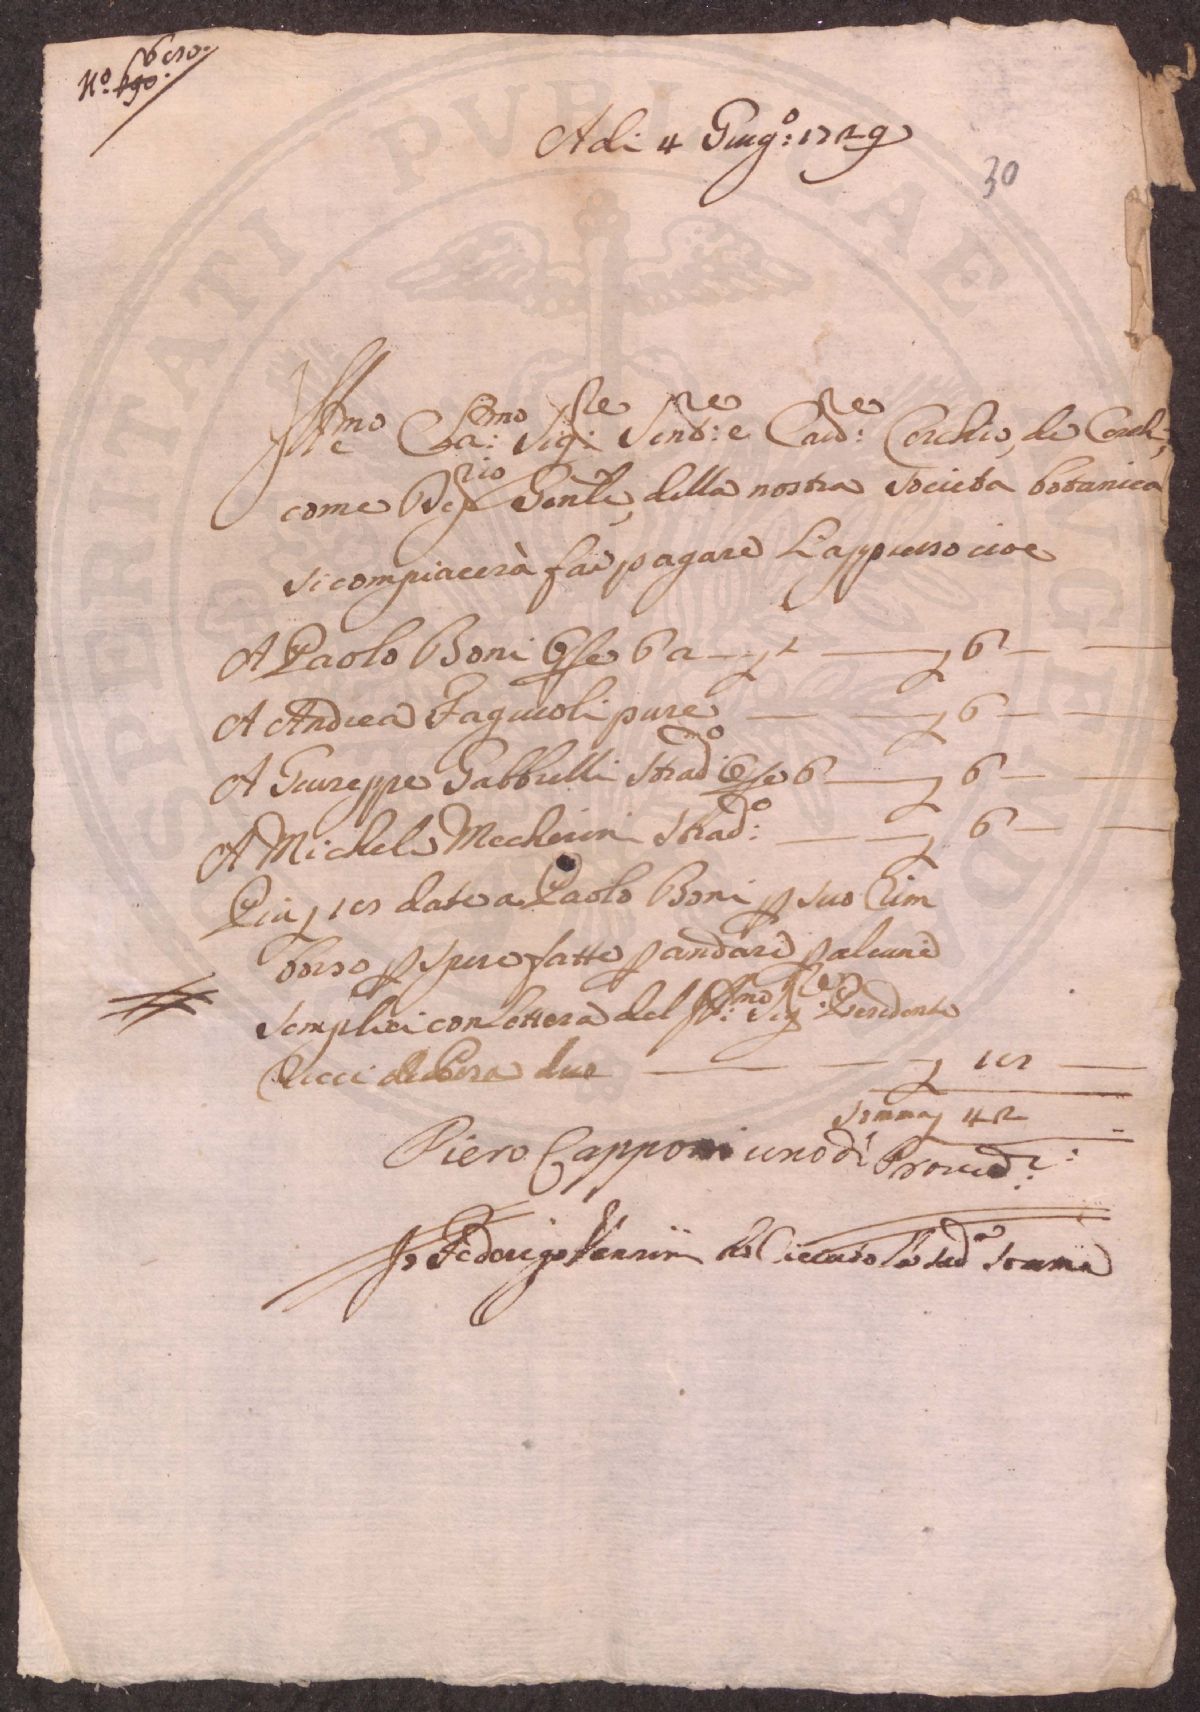 N.º 690.
Adi 4 Giug.º: 1729
30
Ill.mo e Cla:mo Sig:re Send:re e Cav:re Cerchio, de Cerchi,
come Dep.rio Gen.le, della nostra società botanica
si compiacerà far pagare l'appresso cioe
A Paolo Boni Opse 6 a — £ — £ 6 — —
A Andrea Fagiuoli pure — — £ 6 — —
A Giuseppe Gabbrielli Strad.mo Opse 6 — £ 6 — —
A Michele Mecherini Strad:º — — £ 6 — —
Piu £ 18 date a Paolo Boni p suo Rim
borso p spese fatte p andare p alcune
semplici con lettera del Ill:mo Sig:re Presidente
Ricci di Pera due — — — £ 18 —
Somma £ 42
Piero Capponi uno di Proved:ri
Io Federigo Nannini ho Riceuto la sud.a somma
SPERITATI PVBLICAE